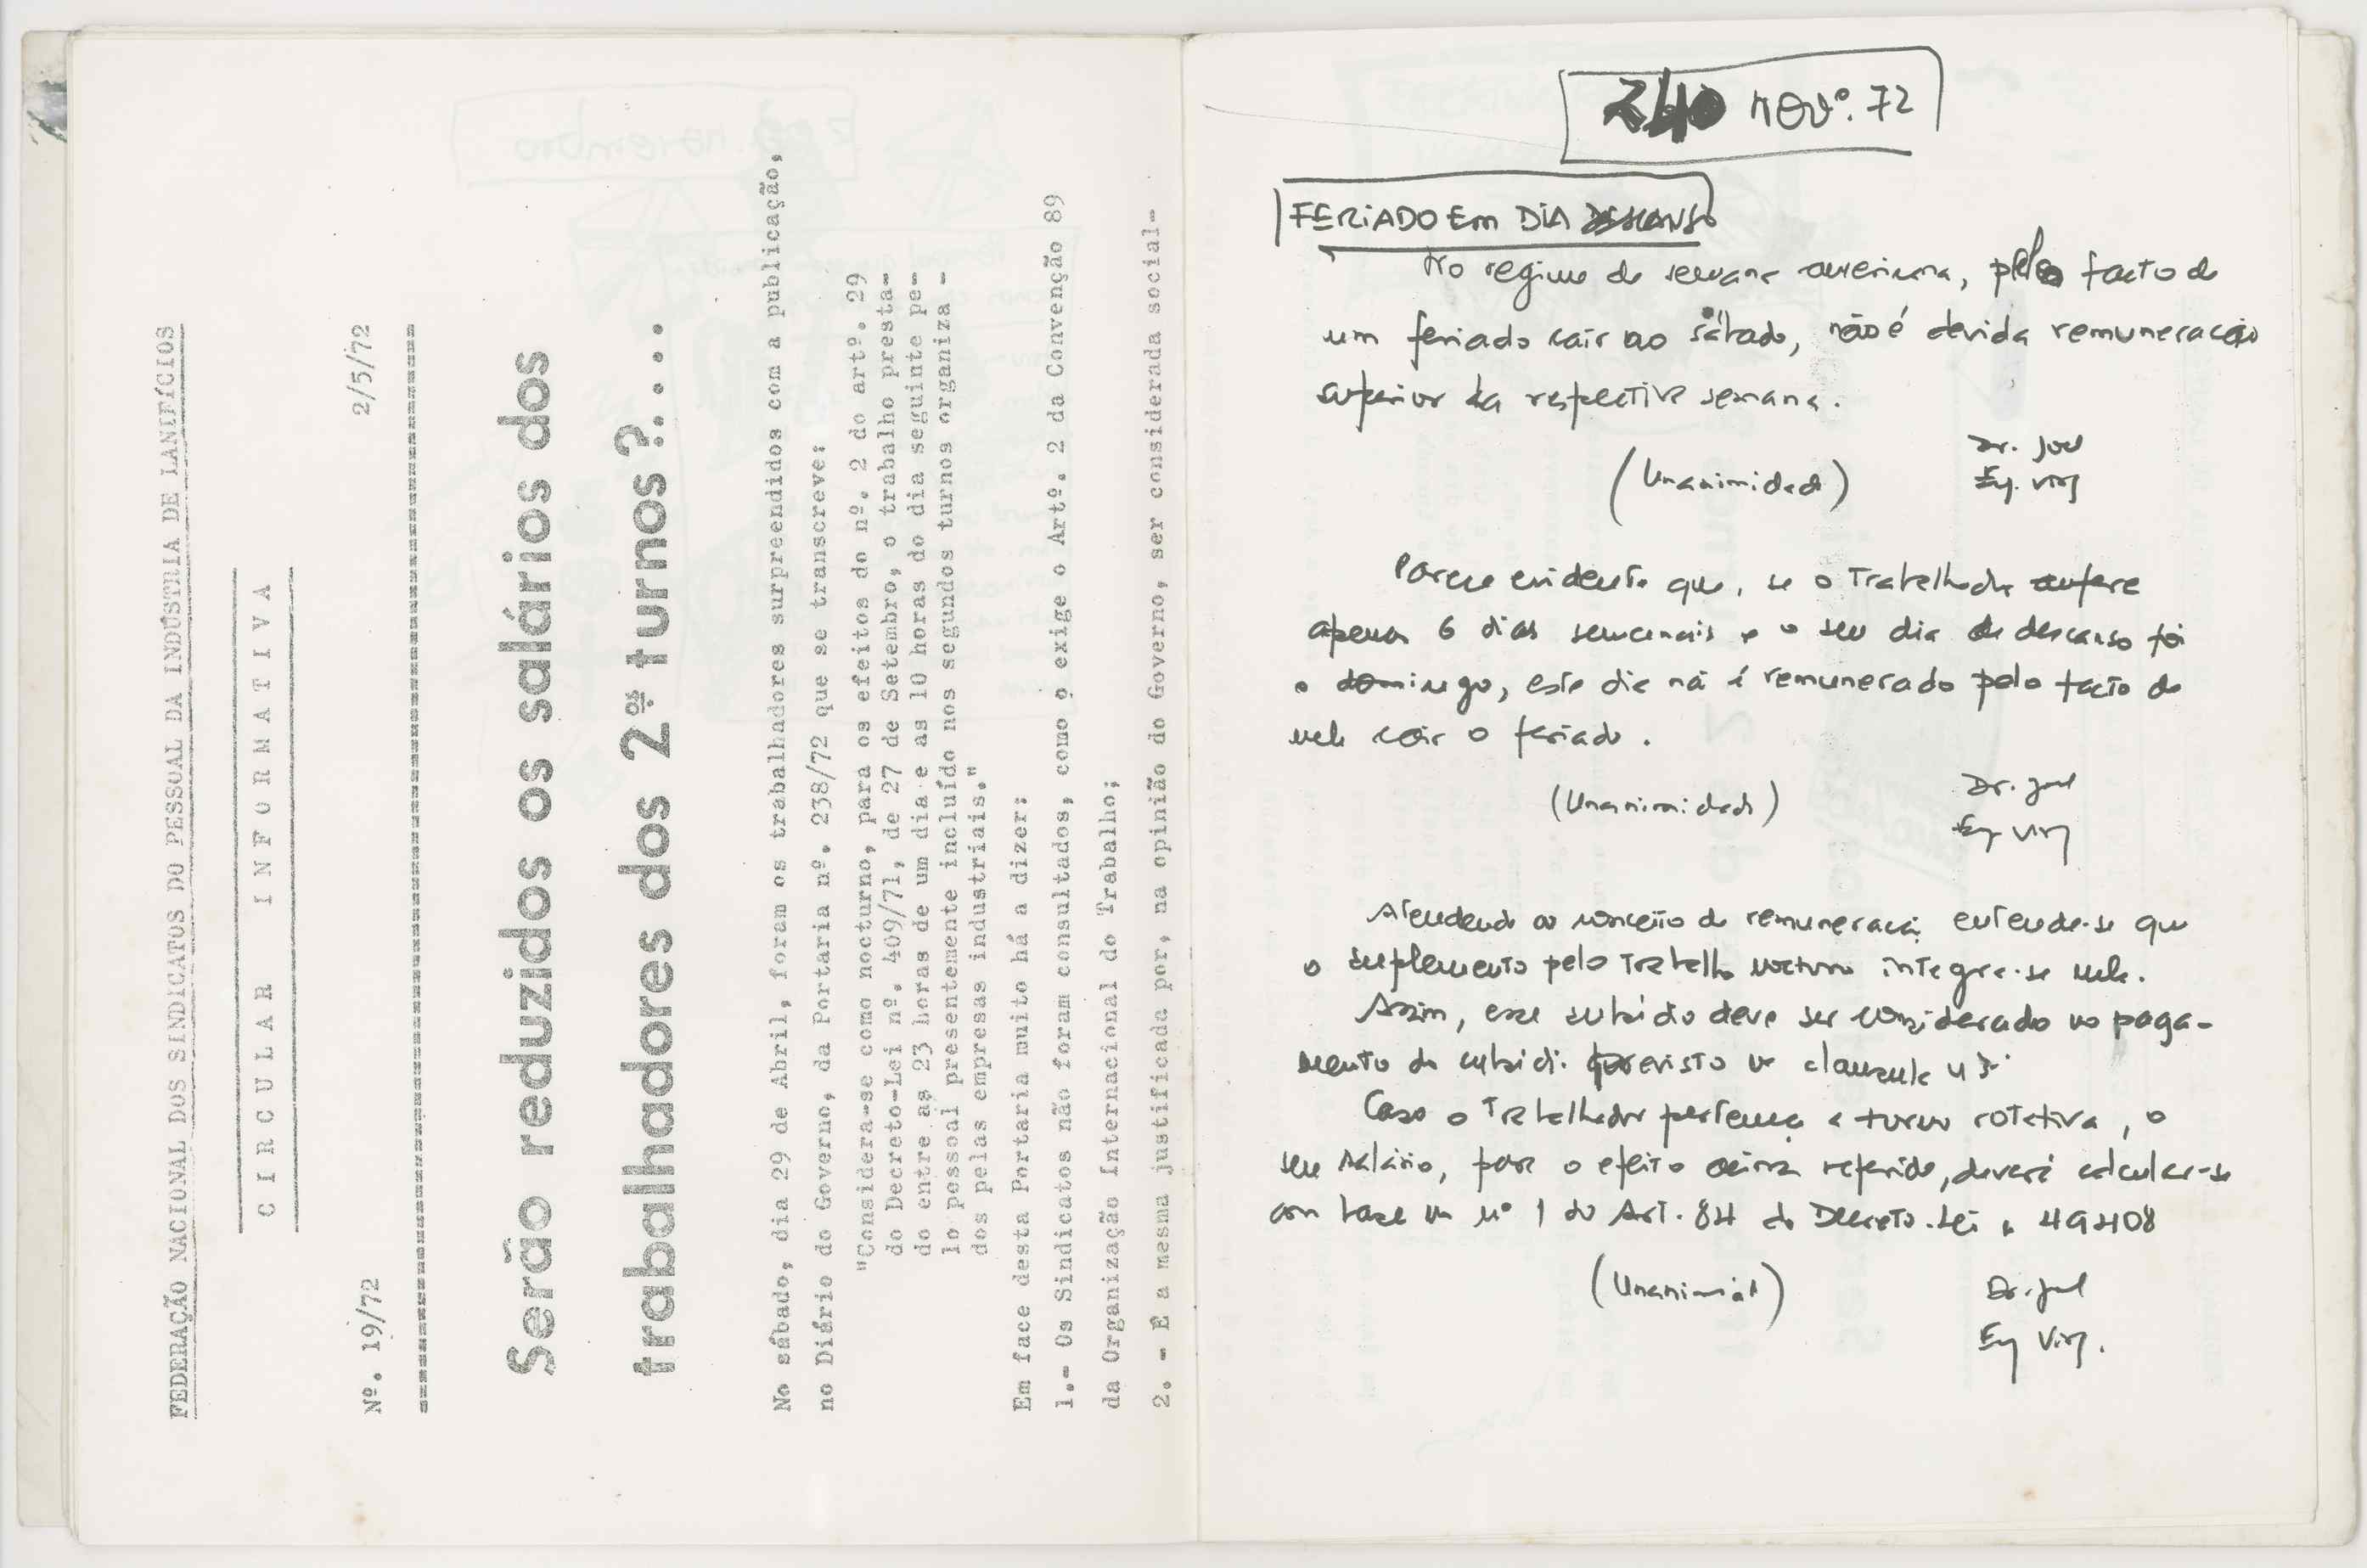 FEDERAÇÃO NACIONAL DOS SINDICATOS DO PESSOAL DA INDÚSTRIA DE LANIFÍCIOS
C I R C U L A R   I N F O R M A T I V A
Nº. 19/72   2/5/72
Serão reduzidos os salários dos
trabalhadores dos 2ºs turnos?....
No sábado, dia 29 de Abril, foram os trabalhadores surpreendidos com a publicação,
no Diário do Governo, da Portaria nº. 238/72 que se transcreve:
"Considera-se como nocturno, para os efeitos do nº. 2 do artº. 29
do Decreto-Lei nº. 409/71, de 27 de Setembro, o trabalho presta-
do entre as 23 horas de um dia e as 10 horas do dia seguinte pe-
lo pessoal presentemente incluído nos segundos turnos organiza -
dos pelas empresas industriais."
Em face desta Portaria muito há a dizer:
1.- Os Sindicatos não foram consultados, como o exige o Artº. 2 da Convenção 89
da Organização Internacional do Trabalho;
2. - E a mesma justificada por, na opinião do Governo, ser considerada social-
novº. 72
FERIADO Em DIA DESCANSO
No regime de semana americana, pelo facto de
um feriado cair ao sábado, não é devida remuneração
superior da respectiva semana.
(Unanimidade)
Dr. Joel
Eg. Virg
Parece evidente que, se o Trabalhador aufere
apenas 6 dias semanais e o seu dia de descanso foi
o domingo, este dia não é remunerado pelo facto de
nele cair o feriado.
(Unanimidade)
Dr. Joel
Eg Virg
Atendendo ao conceito de remuneração entende-se que
o suplemento pelo Trabalho nocturno integra-se nele.
Assim, esse subsídio deve ser considerado no paga-
mento do subsídio previsto na clausula 43ª
Caso o Trabalhador pertença a turno rotativa, o
seu salário, para o efeito acima referido, deverá calcular-se
com base no nº 1 do Art. 84 do Decreto-Lei 49408
(Unanimidade)
Dr. Joel
Eg Virg.